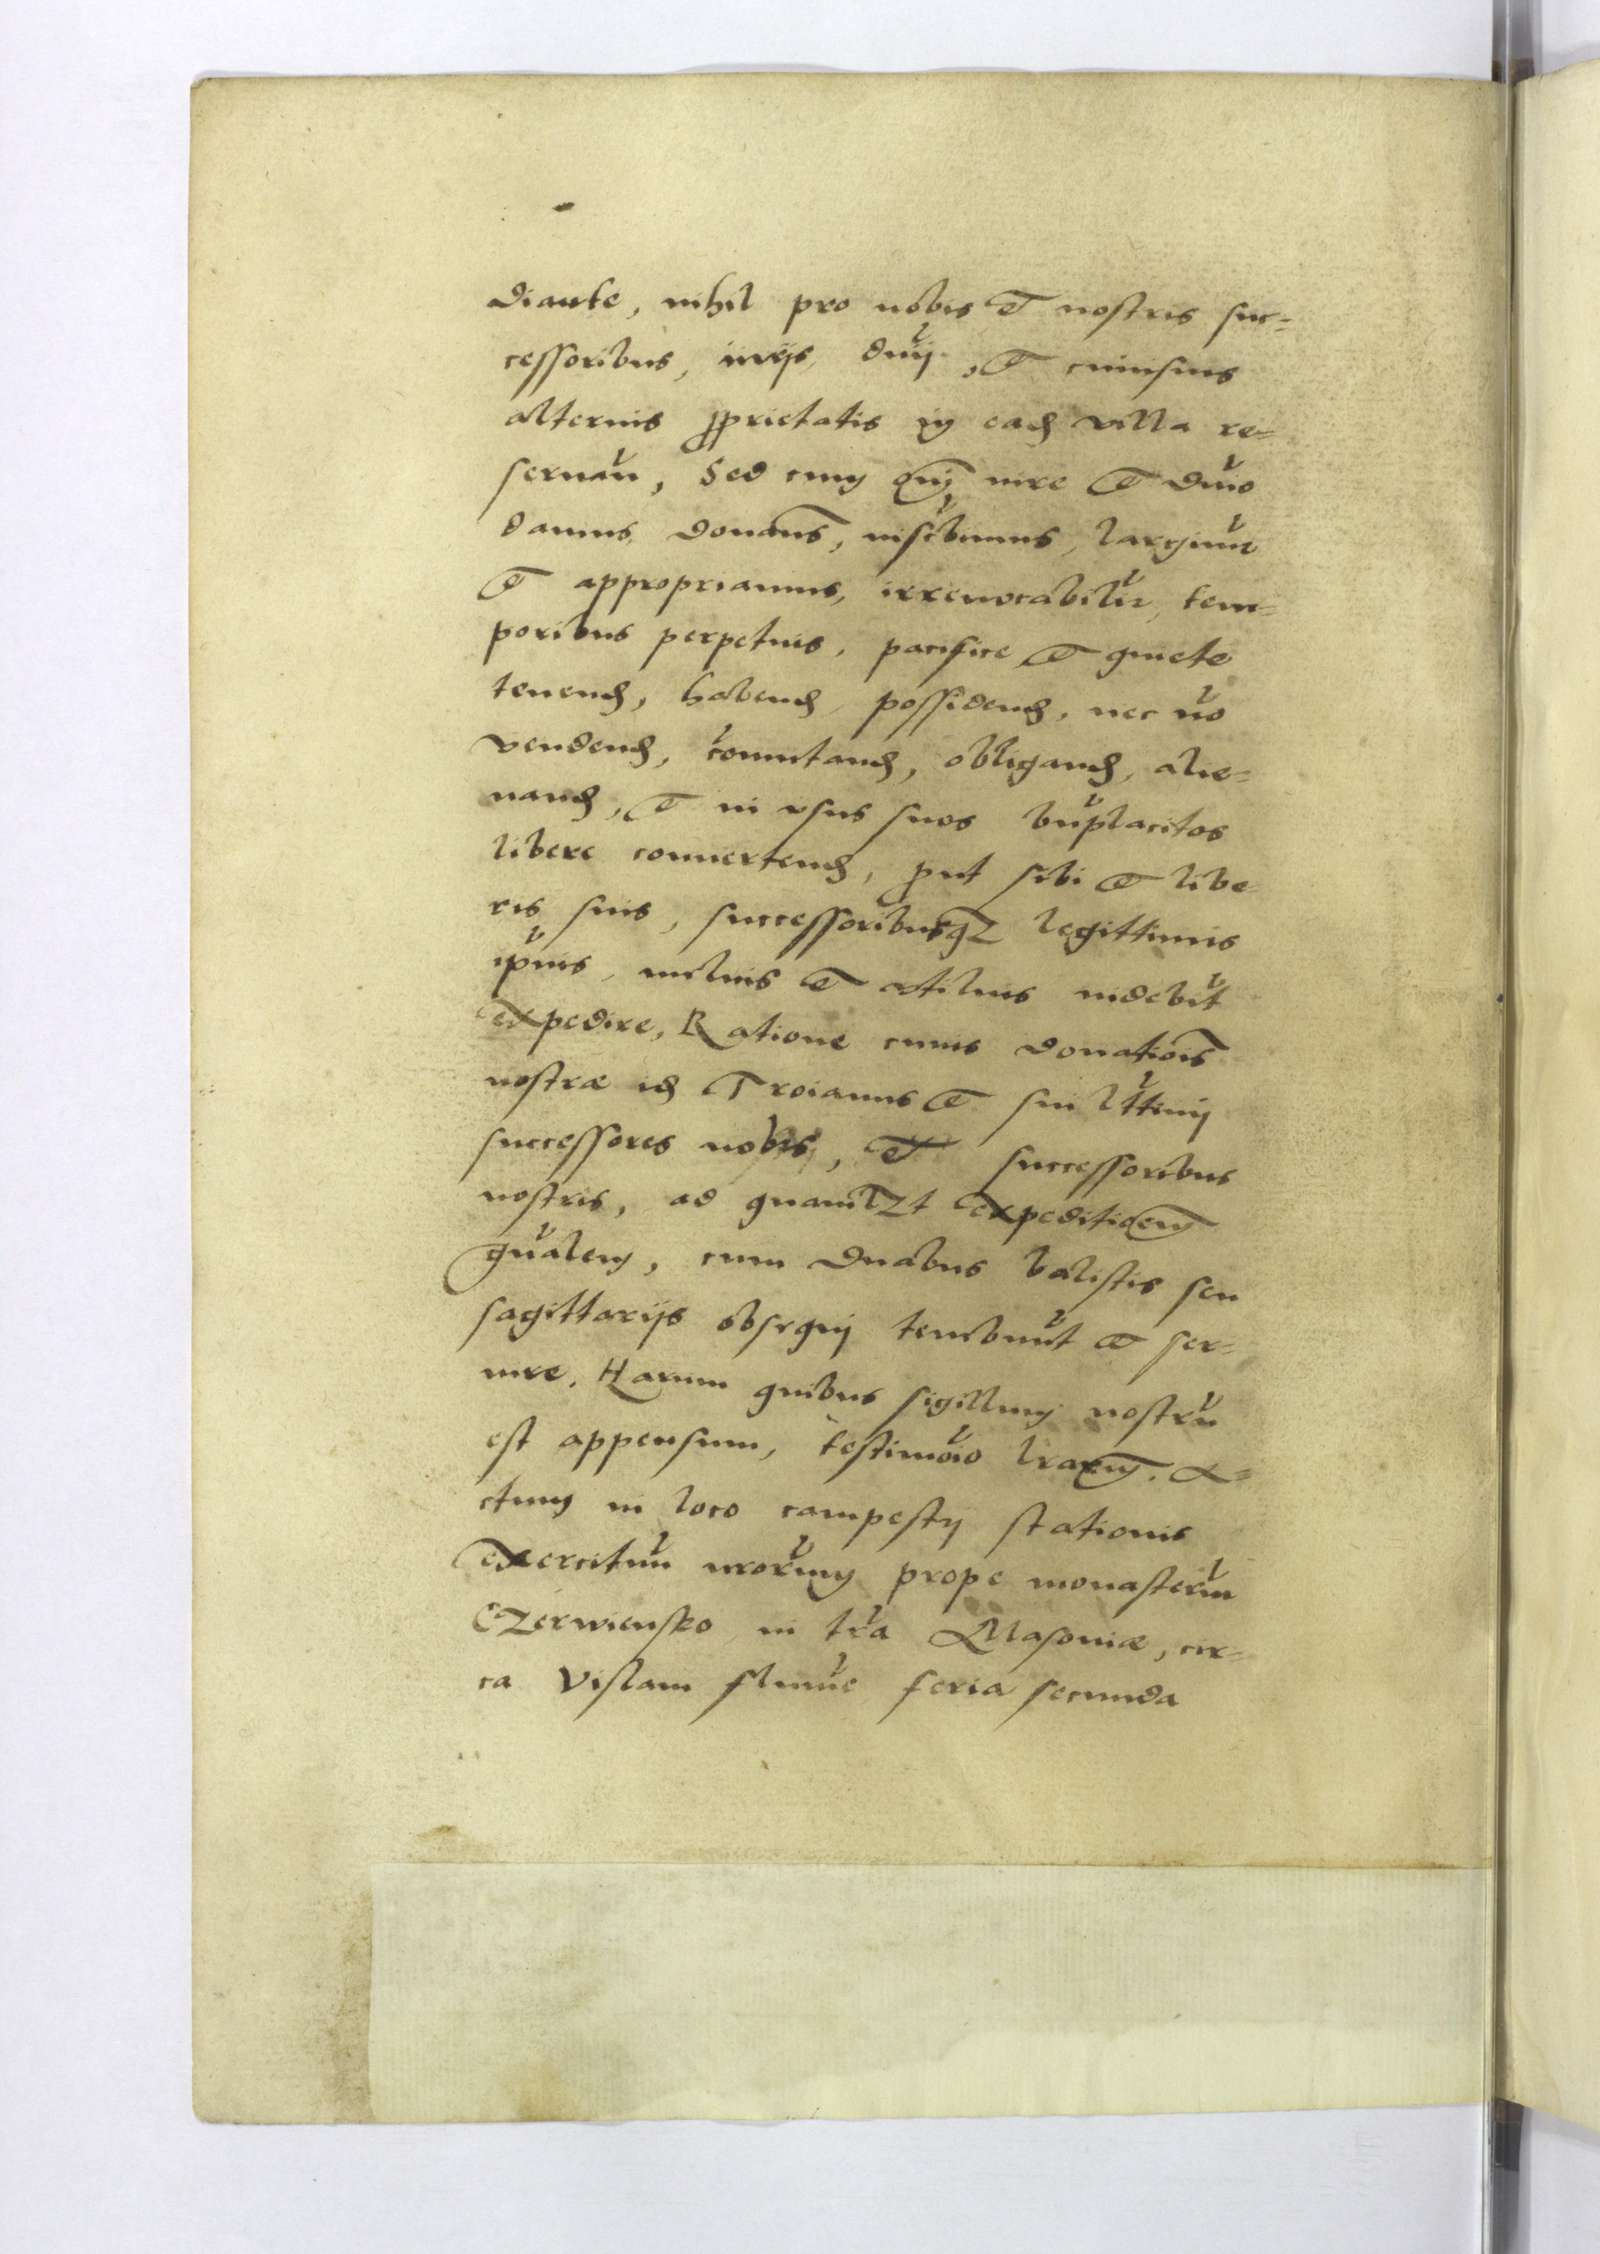 diante, nihil pro nobis et nostris suc=
cessoribus, iurijs, dnij, et cuiusuis
alterius proprietatis in eadem villa re=
seruan, Sed cum omni iure et dnio
damus, donams, inscribimus, largimur
et appropriamus, irreuocabiliter, tem=
poribus perpetuis, pacifice et quiete
tenend, habend, possidend, nec no
vendend, comutand, obligand, alie=
nand, et in vsus suos bnplacitos
libere conuertend, prout sibi et libe=
ris suis, successoribusqz legittimis
ipius, melius et vtilius videbit
expedire, Ratione cuius donationis
nostræ id Troianus et sui lttimi
successores nobis, et successoribus
nostris, ad quamlzt expeditionem
gnalem, cum duabus balistis seu
sagittarijs obsequij tenebunt et ser=
uire. Harum quibus sigillum nostru
est appensum, testimoio lrarum. A=
ctum in loco campestri stationis
exercituu nrorum prope monasteriu
Czerwiensko in tra Masouiæ, cir=
ca Vislam fluuiu feria secunda